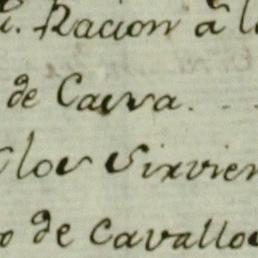 Racion â l
de Caeva. . .
los Sirvien
o de Cavallo